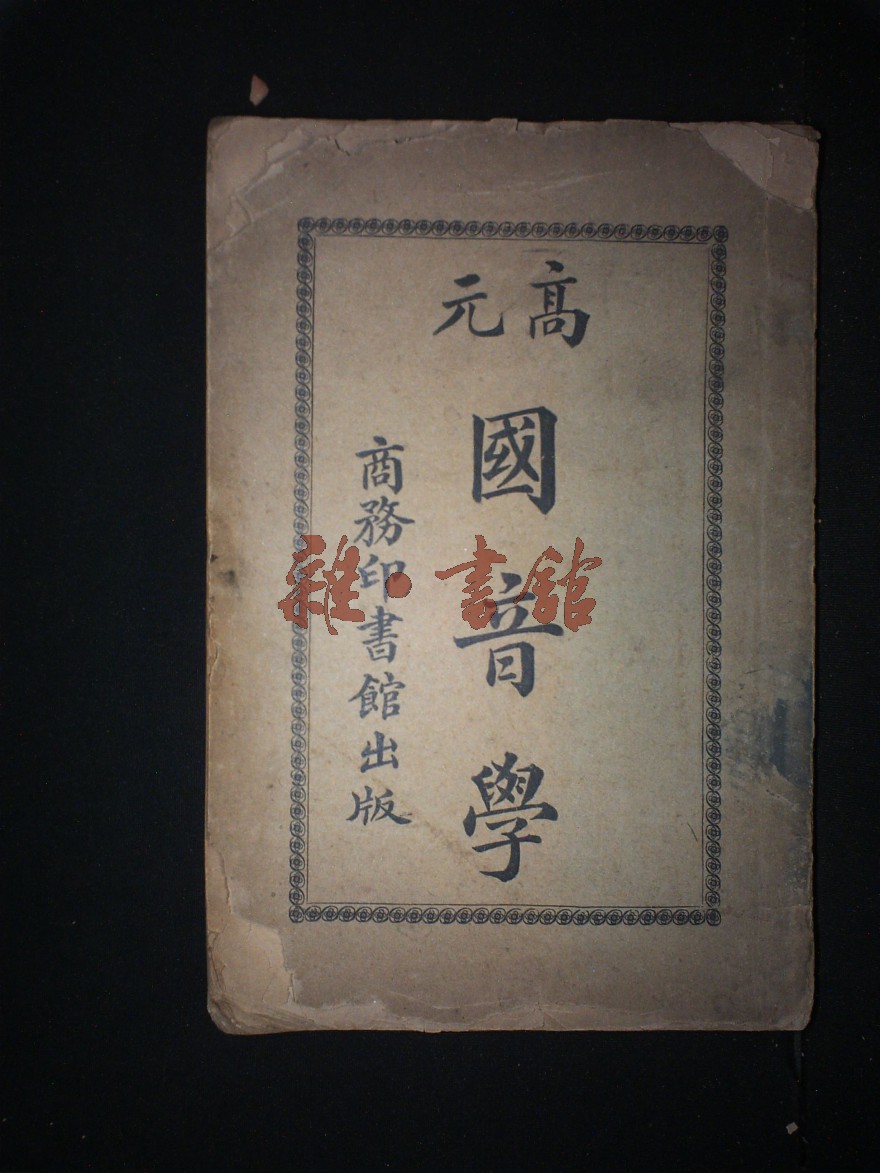 高元
國音學
商務印書館出版
雜·書館